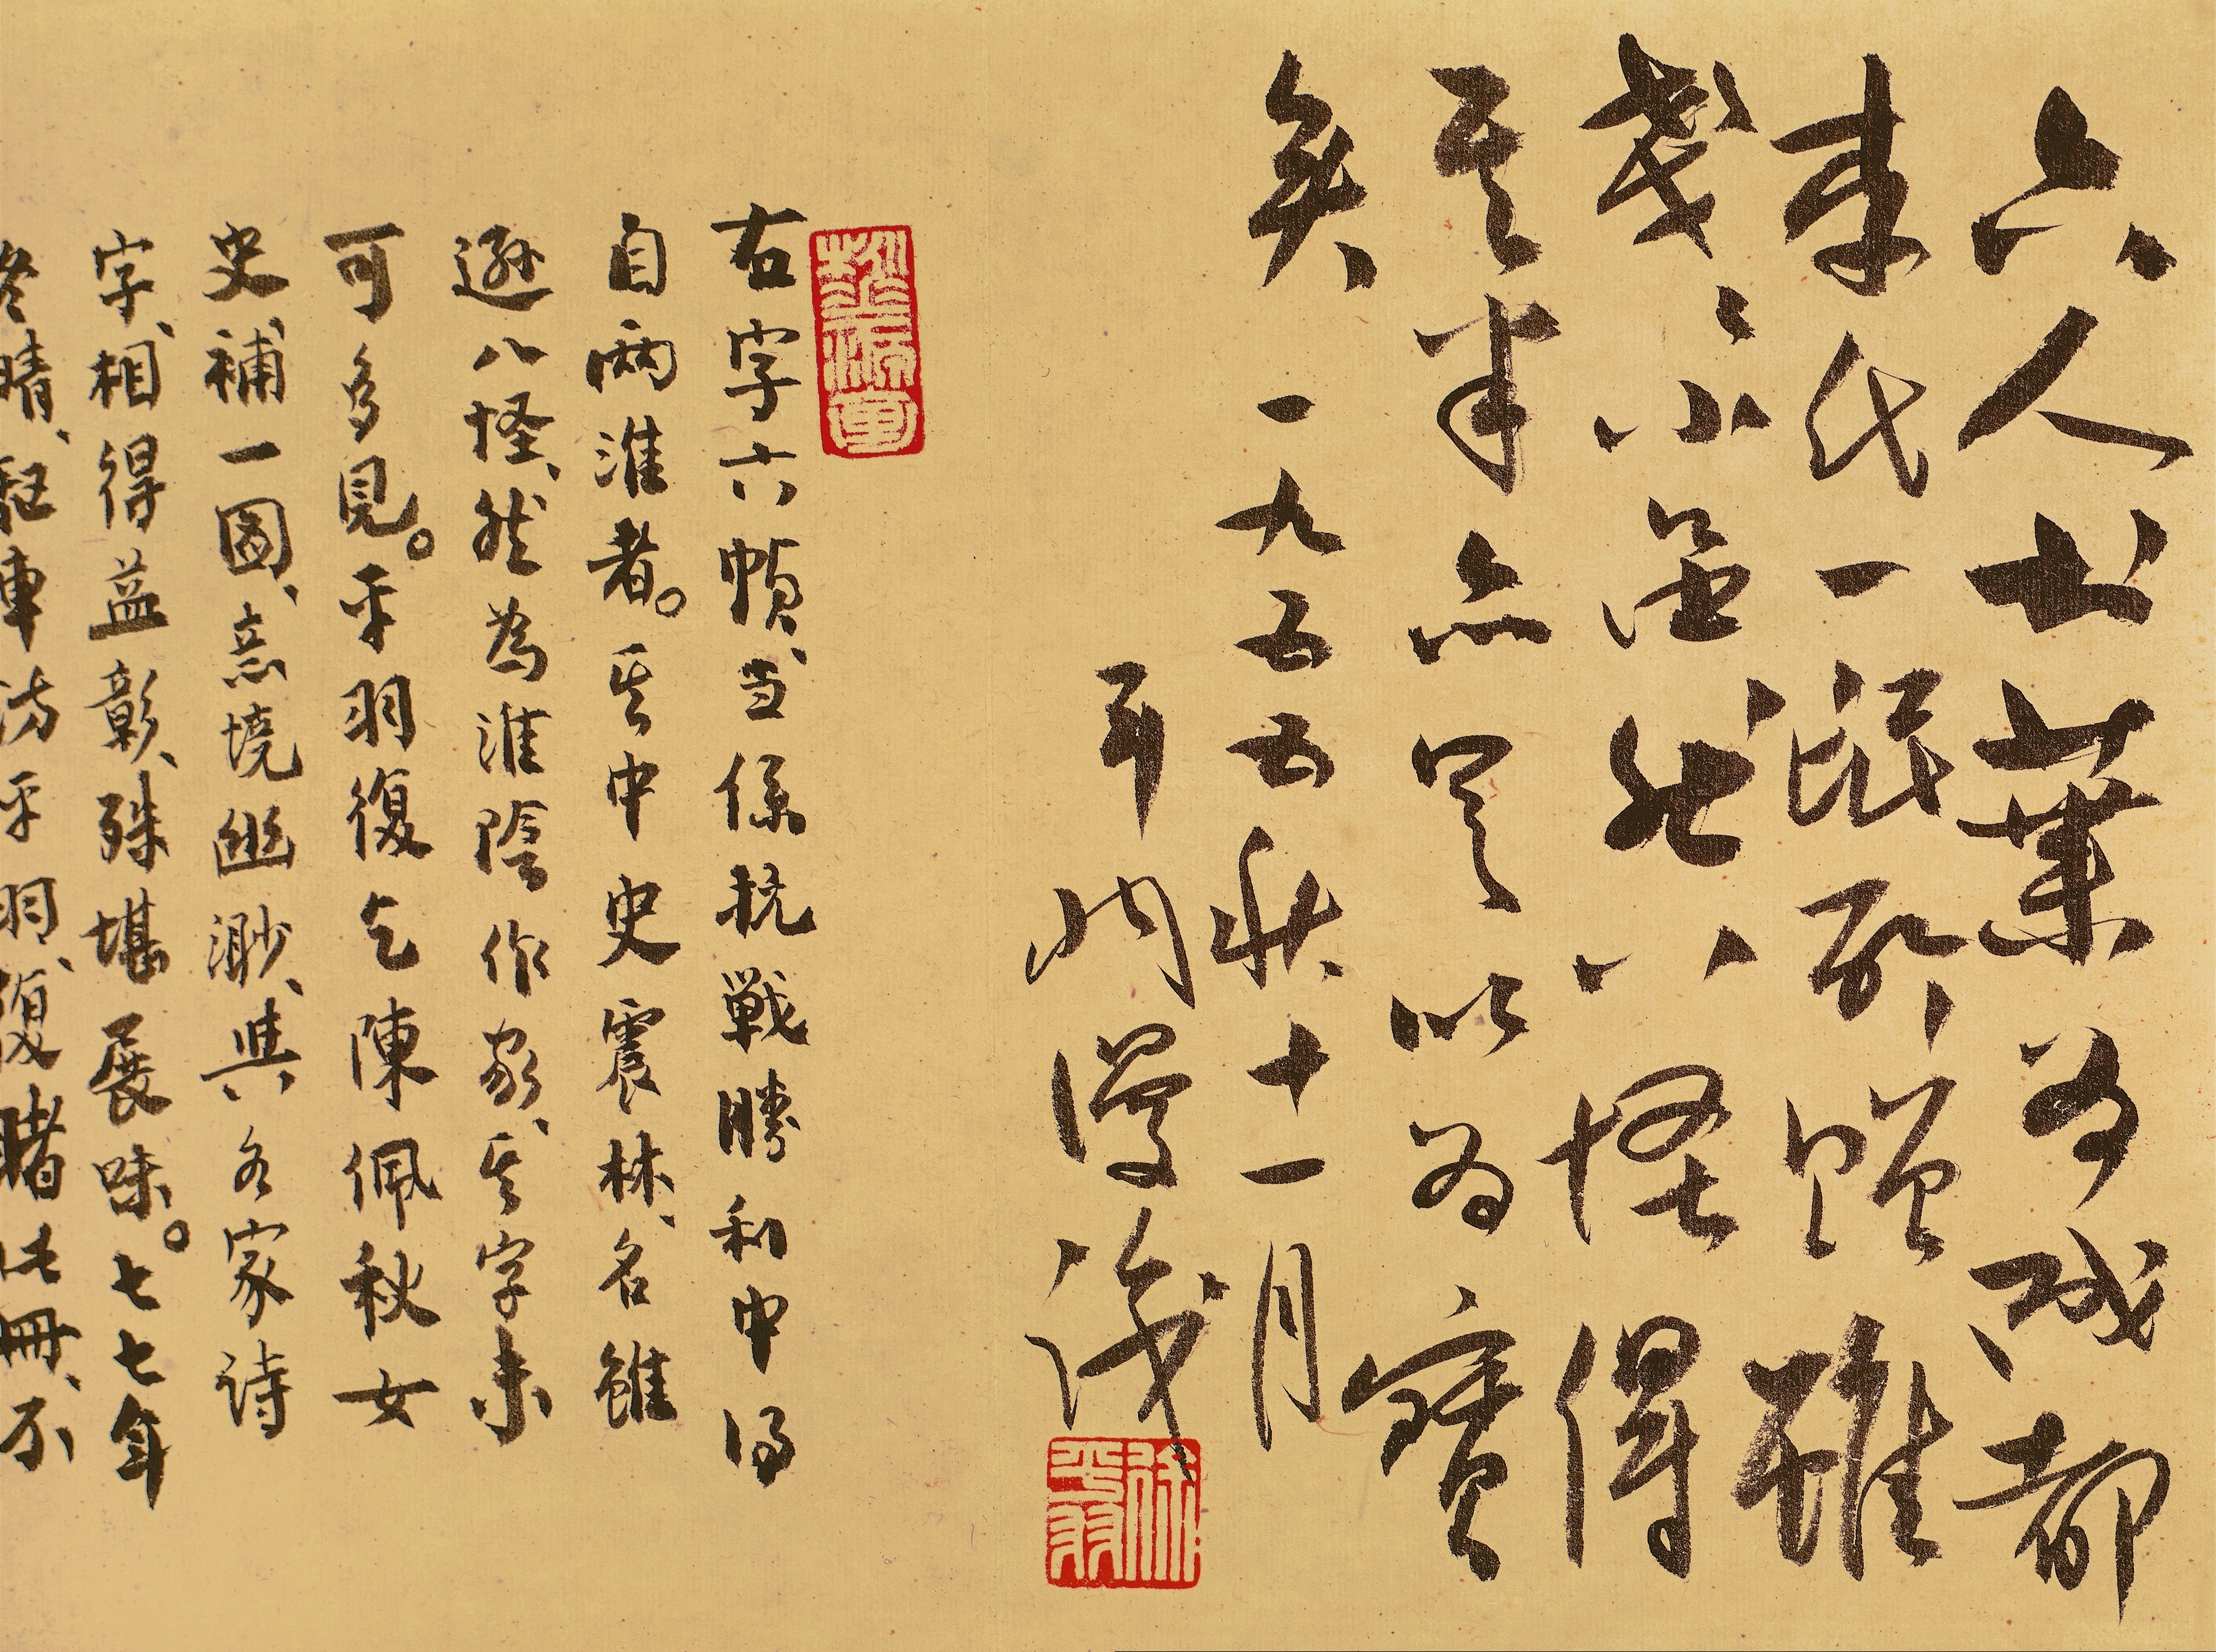 六人廿葉為成都
李氏一氓所贈雖
戔々小然八怪得
其半亦足以為寶
矣一九五五秋十一月
平羽謾識
徐平羽
右字六幀、当係抗戦勝利中得
自兩淮者。其中史震林、名雖
遜八怪、然為淮陰作家、其字未
可多見。平羽復乞陳佩秋女
史補一圖、意境幽渺、與各家詩
字、相得益彰、殊堪展味。七七年
冬晴、駆車訪平羽、復睹此冊、不